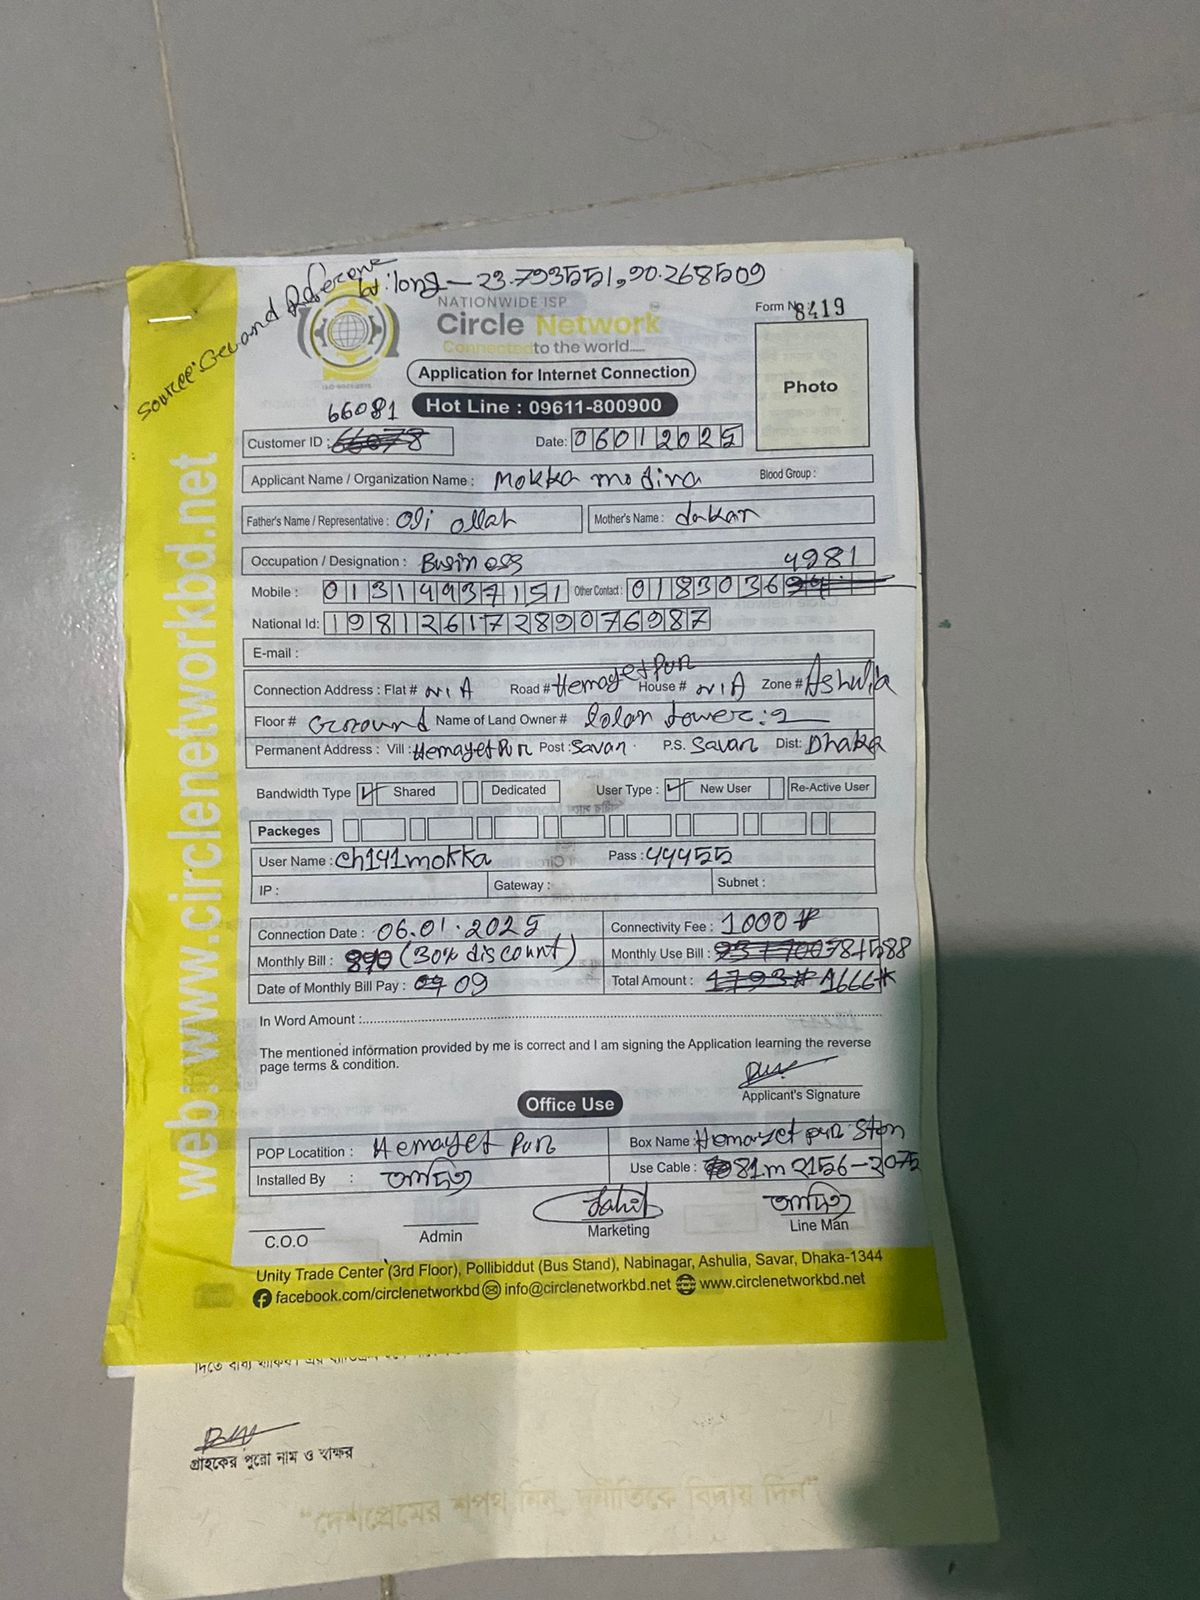 lat:long — 23.793551,90.268509
Source: Ge and Referenc
NATIONWIDE ISP
Circle Network
Connected to the world.....
Form No 8419
Application for Internet Connection
Photo
66081
Hot Line : 09611-800900
Customer ID : 66078 Date: 06012025
Applicant Name / Organization Name : Mokka modina Blood Group :
Father's Name / Representative : Oli ollah Mother's Name :
Occupation / Designation : Business 4981
Mobile : 01314937151 Other Contact : 0183036
National Id: 19812617289076987
E-mail :
Connection Address : Flat # N/A Road # HemayetPur House # N/A Zone # Ashulia
Floor # Ground Name of Land Owner # lalan tower:2
Permanent Address : Vill : HemayetPur Post : Savar P.S. Savar Dist: Dhaka
Bandwidth Type Shared Dedicated User Type : New User Re-Active User
Packeges
User Name : ch141mokka Pass : 44455
IP : Gateway : Subnet :
Connection Date : 06.01.2025 Connectivity Fee : 1000
Monthly Bill : (30% discount) Monthly Use Bill : 78+588
Date of Monthly Bill Pay : 09 Total Amount : 1793 1666
In Word Amount :
The mentioned information provided by me is correct and I am signing the Application learning the reverse
page terms & condition.
Applicant's Signature
Office Use
POP Locatition : Hemayet Pur Box Name : Hemayet pur Stan
Installed By : আদিত্য Use Cable : 81.m 2156-2075
আদিত্য
C.O.O Admin Marketing Line Man
Unity Trade Center (3rd Floor), Pollibiddut (Bus Stand), Nabinagar, Ashulia, Savar, Dhaka-1344
facebook.com/circlenetworkbd info@circlenetworkbd.net www.circlenetworkbd.net
web: www.circlenetworkbd.net
গ্রাহকের পুরো নাম ও স্বাক্ষর
“দেশপ্রেমের শপথ নিন, দুর্নীতিকে বিদায় দিন”